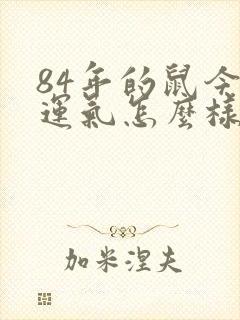 84年的鼠今
運氣怎麼樣
加米涅夫